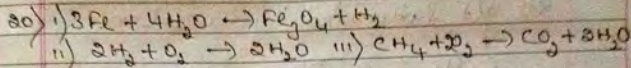 20) i) 3Fe + 4H₂O → Fe₃O₄ + H₂
ii) 2H₂ + O₂ → 2H₂O iii) CH₄ + 2O₂ → CO₂ + 2H₂O